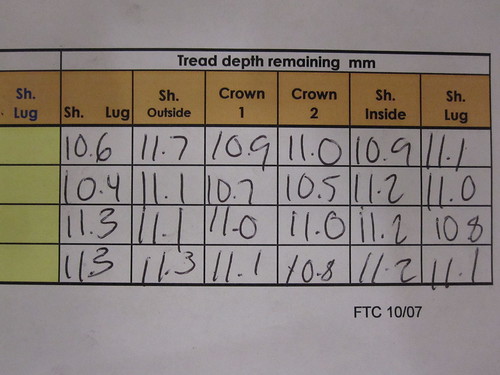 Tread depth remaining mm
Sh. Lug Sh. Lug Sh. Outside Crown 1 Crown 2 Sh. Inside Sh. Lug
10.6 11.7 10.9 11.0 10.9 11.1
10.4 11.1 10.7 10.5 11.2 11.0
11.3 11.1 11.0 11.0 11.2 10 8
11.3 11.3 11.1 10.8 11.2 11.1
FTC 10/07